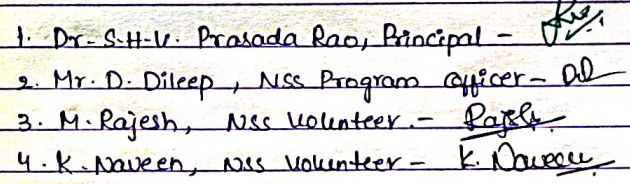 1. Dr. S.H.V. Prasada Rao, Principal -
2. Mr. D. Dileep, NSS Program Officer -
3. M. Rajesh, NSS Volunteer. - Rajesh
4. K. Naveen, NSS Volunteer - K. Naveen